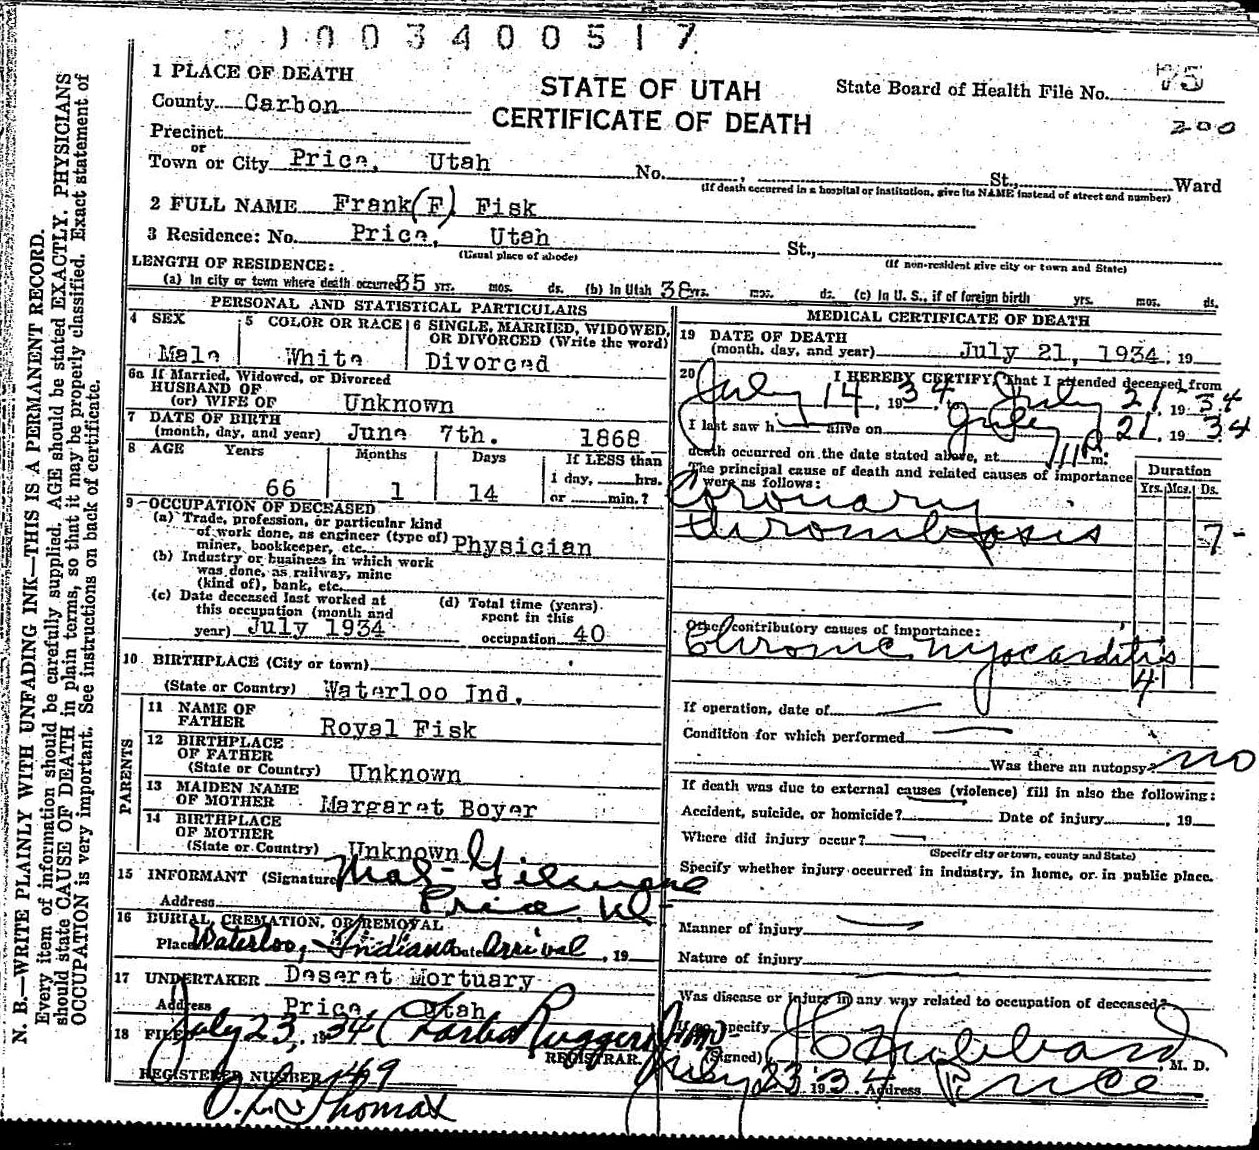 1003400517
1 PLACE OF DEATH
STATE OF UTAH
CERTIFICATE OF DEATH
State Board of Health File No. 75
200
County Carbon
Precinct
or
Town or City Price, Utah No. , St., Ward
(If death occurred in a hospital or institution, give its NAME instead of street and number)
2 FULL NAME Frank (F) Fisk
3 Residence: No. Price, Utah St.,
(Usual place of abode) (If non-resident give city or town and State)
LENGTH OF RESIDENCE:
(a) In city or town where death occurred 35 yrs. mos. ds. (b) In Utah 38 yrs. mos. ds. (c) In U. S., if of foreign birth yrs. mos. ds.
PERSONAL AND STATISTICAL PARTICULARS
4 SEX Male
5 COLOR OR RACE White
6 SINGLE, MARRIED, WIDOWED,
OR DIVORCED (Write the word)
Divorced
6a If Married, Widowed, or Divorced
HUSBAND OF
(or) WIFE OF Unknown
7 DATE OF BIRTH
(month, day, and year) June 7th. 1868
8 AGE Years Months Days If LESS than
1 day, hrs.
66 1 14 or min.?
9 OCCUPATION OF DECEASED
(a) Trade, profession, or particular kind
of work done, as engineer (type of)
miner, bookkeeper, etc. Physician
(b) Industry or business in which work
was done, as railway, mine
(kind of), bank, etc.
(c) Date deceased last worked at
this occupation (month and
year) July 1934
(d) Total time (years)
spent in this
occupation 40
10 BIRTHPLACE (City or town)
(State or Country) Waterloo Ind.
PARENTS
11 NAME OF
FATHER Royal Fisk
12 BIRTHPLACE
OF FATHER
(State or Country) Unknown
13 MAIDEN NAME
OF MOTHER Margaret Boyer
14 BIRTHPLACE
OF MOTHER
(State or Country) Unknown
15 INFORMANT (Signature
Address Price, Ut
16 BURIAL, CREMATION, OR REMOVAL
Place Waterloo, Indiana Date Arrival , 19
17 UNDERTAKER Deseret Mortuary
Address Price Utah
18 FILED July 23, 1934
REGISTRAR.
REGISTERED NUMBER 149
Thomas
MEDICAL CERTIFICATE OF DEATH
19 DATE OF DEATH
(month, day, and year) July 21, 1934. 19
20 I HEREBY CERTIFY, That I attended deceased from
July 14, 1934, July 21, 1934
I last saw h alive on July 21, 1934
death occurred on the date stated above, at m.
The principal cause of death and related causes of importance
were as follows:
Duration
Yrs. Mos. Ds.
Coronary
thrombosis 7-
Other contributory causes of importance:
Chronic Myocarditis
4
If operation, date of
Condition for which performed
Was there an autopsy? no
If death was due to external causes (violence) fill in also the following:
Accident, suicide, or homicide? Date of injury , 19
Where did injury occur?
(Specify city or town, county and State)
Specify whether injury occurred in industry, in home, or in public place.
Manner of injury
Nature of injury
Was disease or injury in any way related to occupation of deceased?
If so, specify
(Signed) Hubbard, M. D.
July 23 1934. Address Price
N. B.—WRITE PLAINLY WITH UNFADING INK—THIS IS A PERMANENT RECORD.
Every item of information should be carefully supplied. AGE should be stated EXACTLY. PHYSICIANS
should state CAUSE OF DEATH in plain terms, so that it may be properly classified. Exact statement of
OCCUPATION is very important. See instructions on back of certificate.